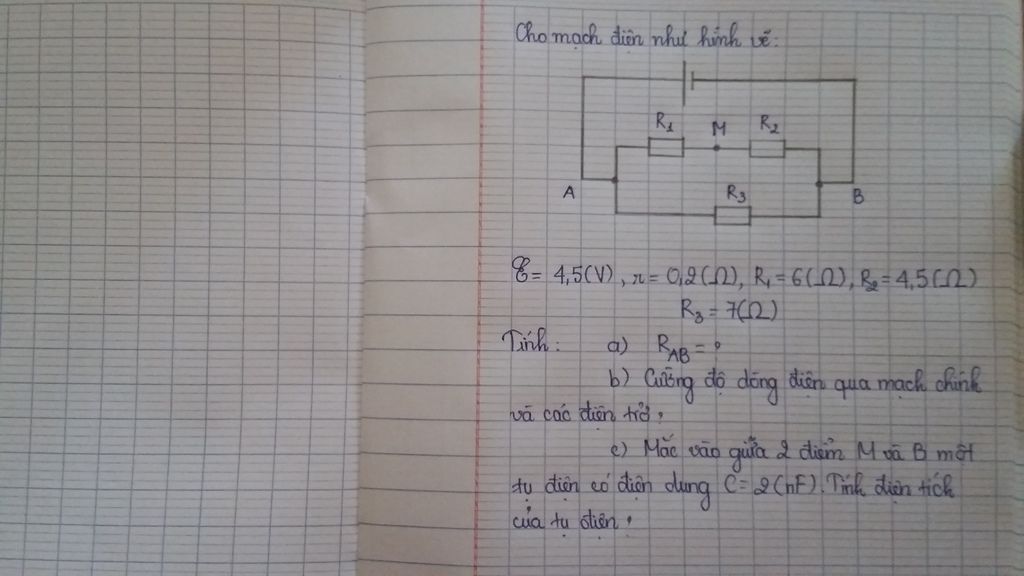 Cho mạch điện như hình vẽ:
R₁ M R₂
A R₃ B
ℰ = 4,5(V), r = 0,2(Ω), R₁ = 6(Ω), R₂ = 4,5(Ω)
R₃ = 7(Ω)
Tính: a) R_AB = ?
b) Cường độ dòng điện qua mạch chính
và các điện trở.
c) Mắc vào giữa 2 điểm M và B một
tụ điện có điện dung C = 2(nF). Tính điện tích
của tụ điện.